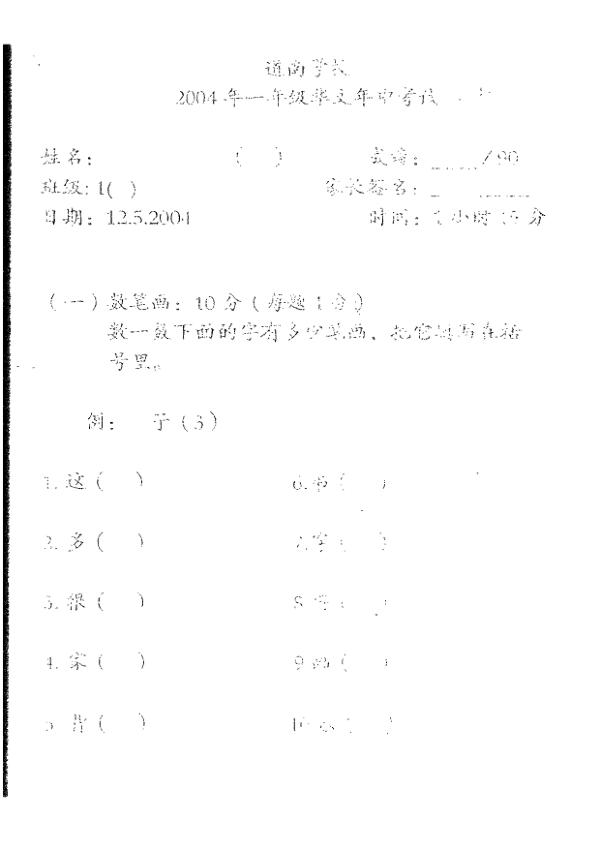 道南学校
2004年一年级华文年中考试
姓名: ( ) /90
班级: 1( ) 家长签名:
日期: 12.5.2004 时间: 1小时15分
(一) 数笔画: 10分 (每题1分)
数一数下面的字有多少笔画,把它填写在括
号里。
例: 于 (3)
1. 这 ( ) 6. 书 ( )
2. 多 ( ) 7. 字 ( )
3. 很 ( ) 8. ( )
4. 家 ( ) 9. ( )
5. 背 ( ) 10. ( )